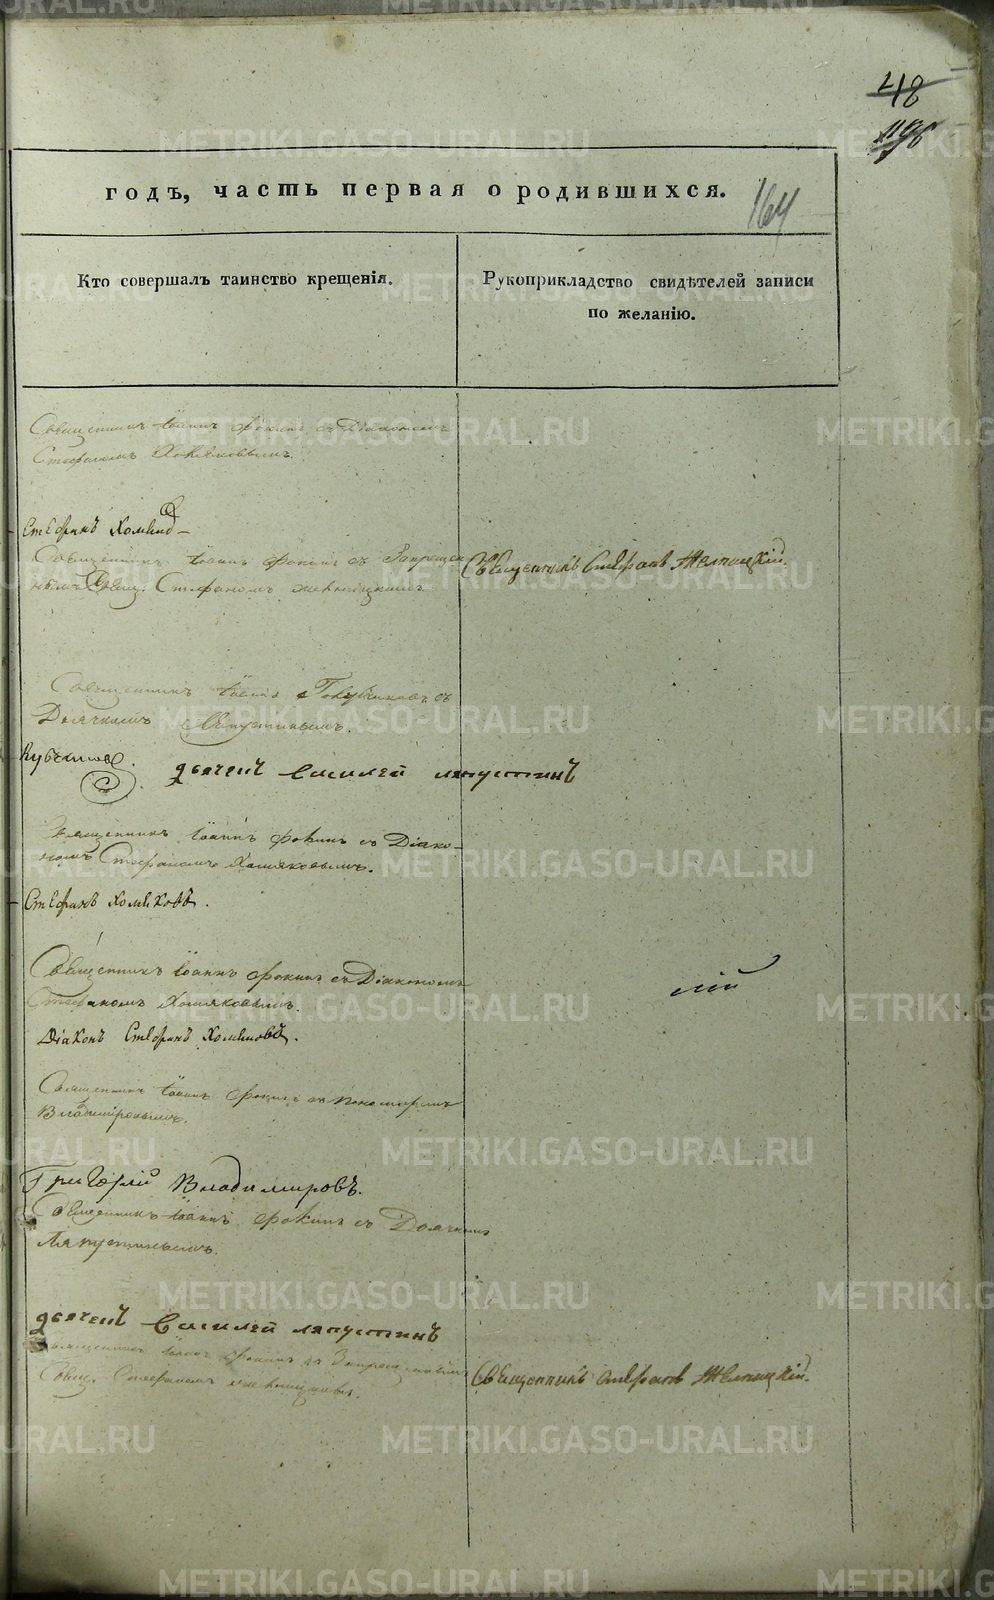 48
164
годъ, часть первая о родившихся.
Кто совершалъ таинство крещенія.
Рукоприкладство свидѣтелей записи
по желанію.
Священникъ Іоаннъ Фокинъ съ Діакономъ
Стефаномъ Хомяковымъ.
Стефанъ Хомяковъ
Священникъ Іоаннъ Фокинъ съ Запрещен
нымъ Свящ. Стефаномъ
Священникъ Стефанъ
Священникъ Іоаннъ съ
Дьячкомъ Ляпустинымъ.
дьячекъ Василей ляпустинъ
Священникъ Іоаннъ Фокинъ съ Діако-
номъ Стефаномъ Хомяковымъ.
Стефанъ Хомяковъ.
Священникъ Іоаннъ Фокинъ съ Діакономъ
Стефаномъ Хомяковымъ.
Діаконъ Стефанъ Хомяковъ.
Священникъ Іоаннъ Фокинъ съ Пономаремъ
Владиміровымъ.
Григорій Владимировъ.
Священникъ Іоаннъ Фокинъ съ Дьячкомъ
Ляпустинымъ.
дьячекъ Василей ляпустинъ
Священникъ Іоаннъ Фокинъ съ Запрещеннымъ
Свящ. Стефаномъ
Священникъ Стефанъ
METRIKI.GASO-URAL.RU